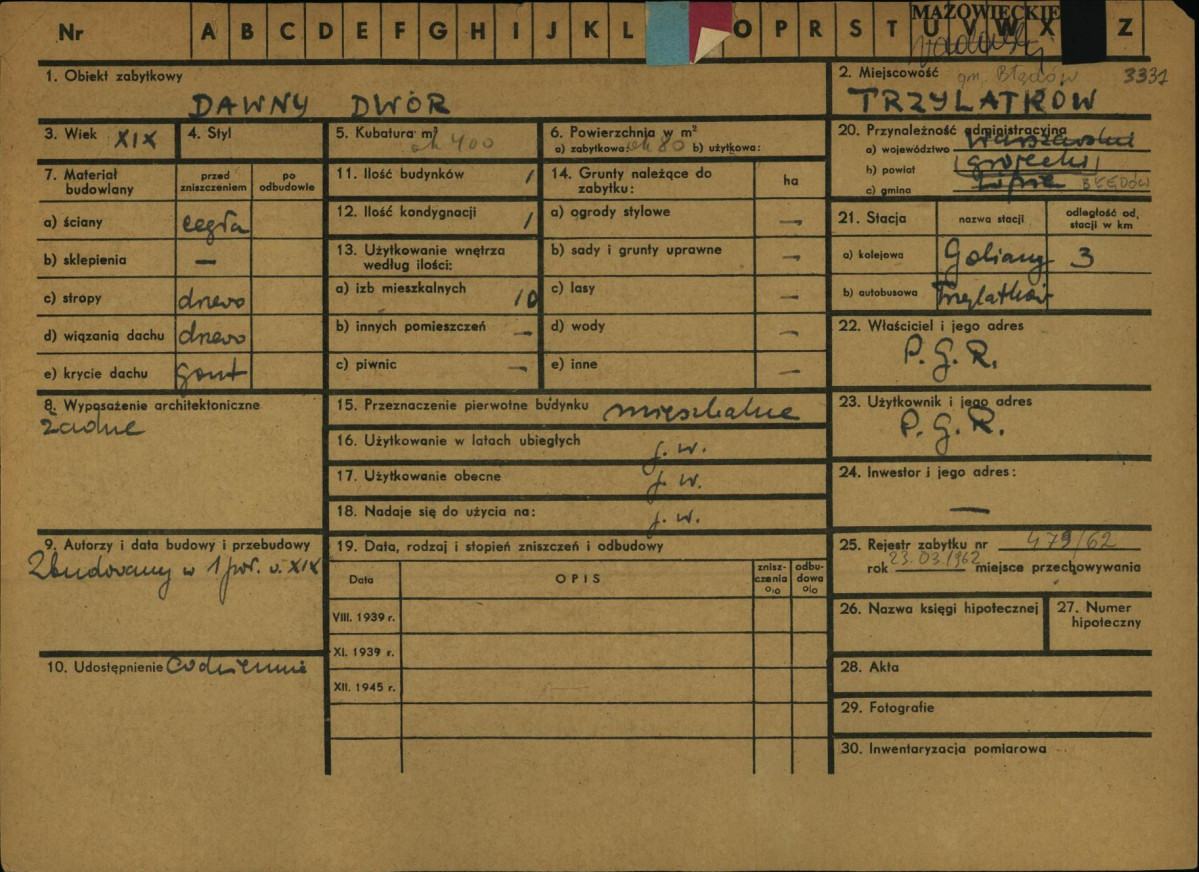 Nr A B C D E F G H I J K L O P R S T U V W X Z
MAZOWIECKIE
1. Obiekt zabytkowy
DAWNY DWÓR
2. Miejscowość gm. Błędów 3331
TRZYLATKÓW
3. Wiek XIX
4. Styl
5. Kubatura m³
ok 400
6. Powierzchnia w m²
a) zabytkowa: ok 80 b) użytkowa:
7. Materiał budowlany
przed zniszczeniem
po odbudowie
a) ściany cegła
b) sklepienia —
c) stropy drzewo
d) wiązania dachu drzewo
e) krycie dachu gont
8. Wyposażenie architektoniczne
żadne
9. Autorzy i data budowy i przebudowy
Zbudowany w 1 poł. w. XIX
10. Udostępnienie codziennie
11. Ilość budynków 1
12. Ilość kondygnacji 1
13. Użytkowanie wnętrza
według ilości:
a) izb mieszkalnych 10
b) innych pomieszczeń —
c) piwnic —
14. Grunty należące do
zabytku:
ha
a) ogrody stylowe —
b) sady i grunty uprawne —
c) lasy —
d) wody —
e) inne —
15. Przeznaczenie pierwotne budynku mieszkalne
16. Użytkowanie w latach ubiegłych j. w.
17. Użytkowanie obecne j. w.
18. Nadaje się do użycia na: j. w.
19. Data, rodzaj i stopień zniszczeń i odbudowy
Data OPIS znisz-czenia o/o odbu-dowa o/o
VIII. 1939 r.
XI. 1939 r.
XII. 1945 r.
20. Przynależność administracyjna
a) województwo warszawskie
b) powiat grójecki
c) gmina Lipie BŁĘDÓW
21. Stacja
nazwa stacji
odległość od stacji w km
a) kolejowa Goliany 3
b) autobusowa Trzylatków
22. Właściciel i jego adres
P. G. R.
23. Użytkownik i jego adres
P. G. R.
24. Inwestor i jego adres:
—
25. Rejestr zabytku nr 479/62
rok 23.03.1962 miejsce przechowywania
26. Nazwa księgi hipotecznej
27. Numer
hipoteczny
28. Akta
29. Fotografie
30. Inwentaryzacja pomiarowa